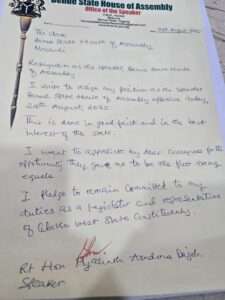 Benue State House of Assembly
Office of the Speaker
The Clerk
Benue State House of Assembly
Makurdi
Resignation as the Speaker, Benue State House
of Assembly
I wish to resign my position as the Speaker
Benue State House of Assembly effective today,
24th August, 2025.
This is done in good faith and in the best
interest of the state.
I want to appreciate my dear Colleagues for the
opportunity they gave me to be the first among
equals.
I pledge to remain committed to my
duties as a legislator and representative
of Gboko West State Constituency.
Rt Hon Aondona Dajoh
Speaker